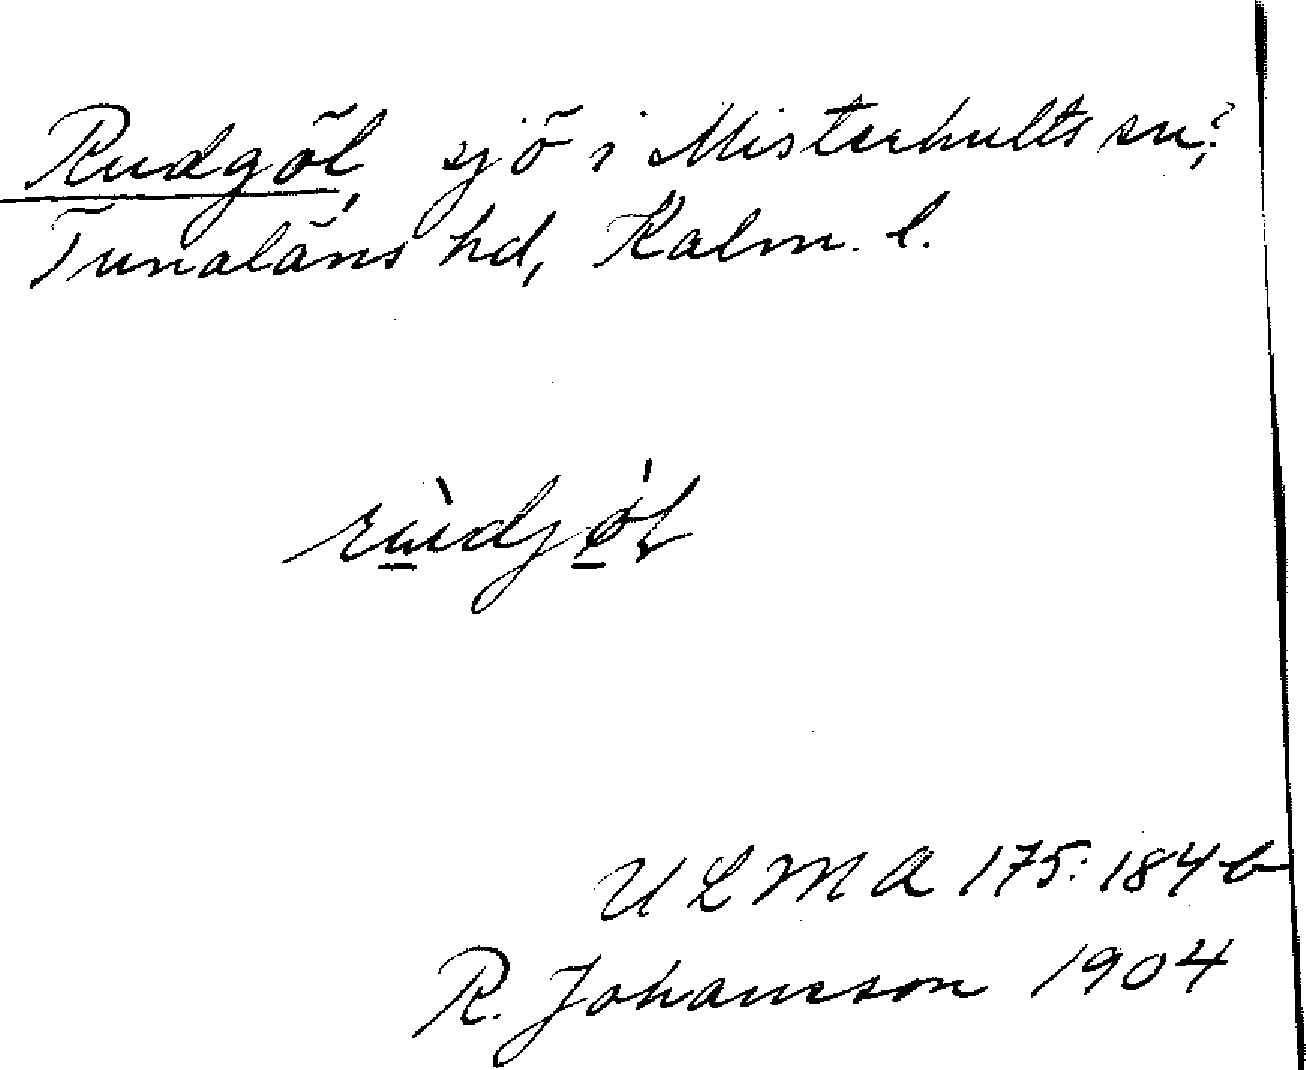 Rudgöl, sjö i Misterhults sn?,
Tunaläns hd, Kalm. l.
rùdjøl
ULMA 175:184 b
R. Johansson 1904